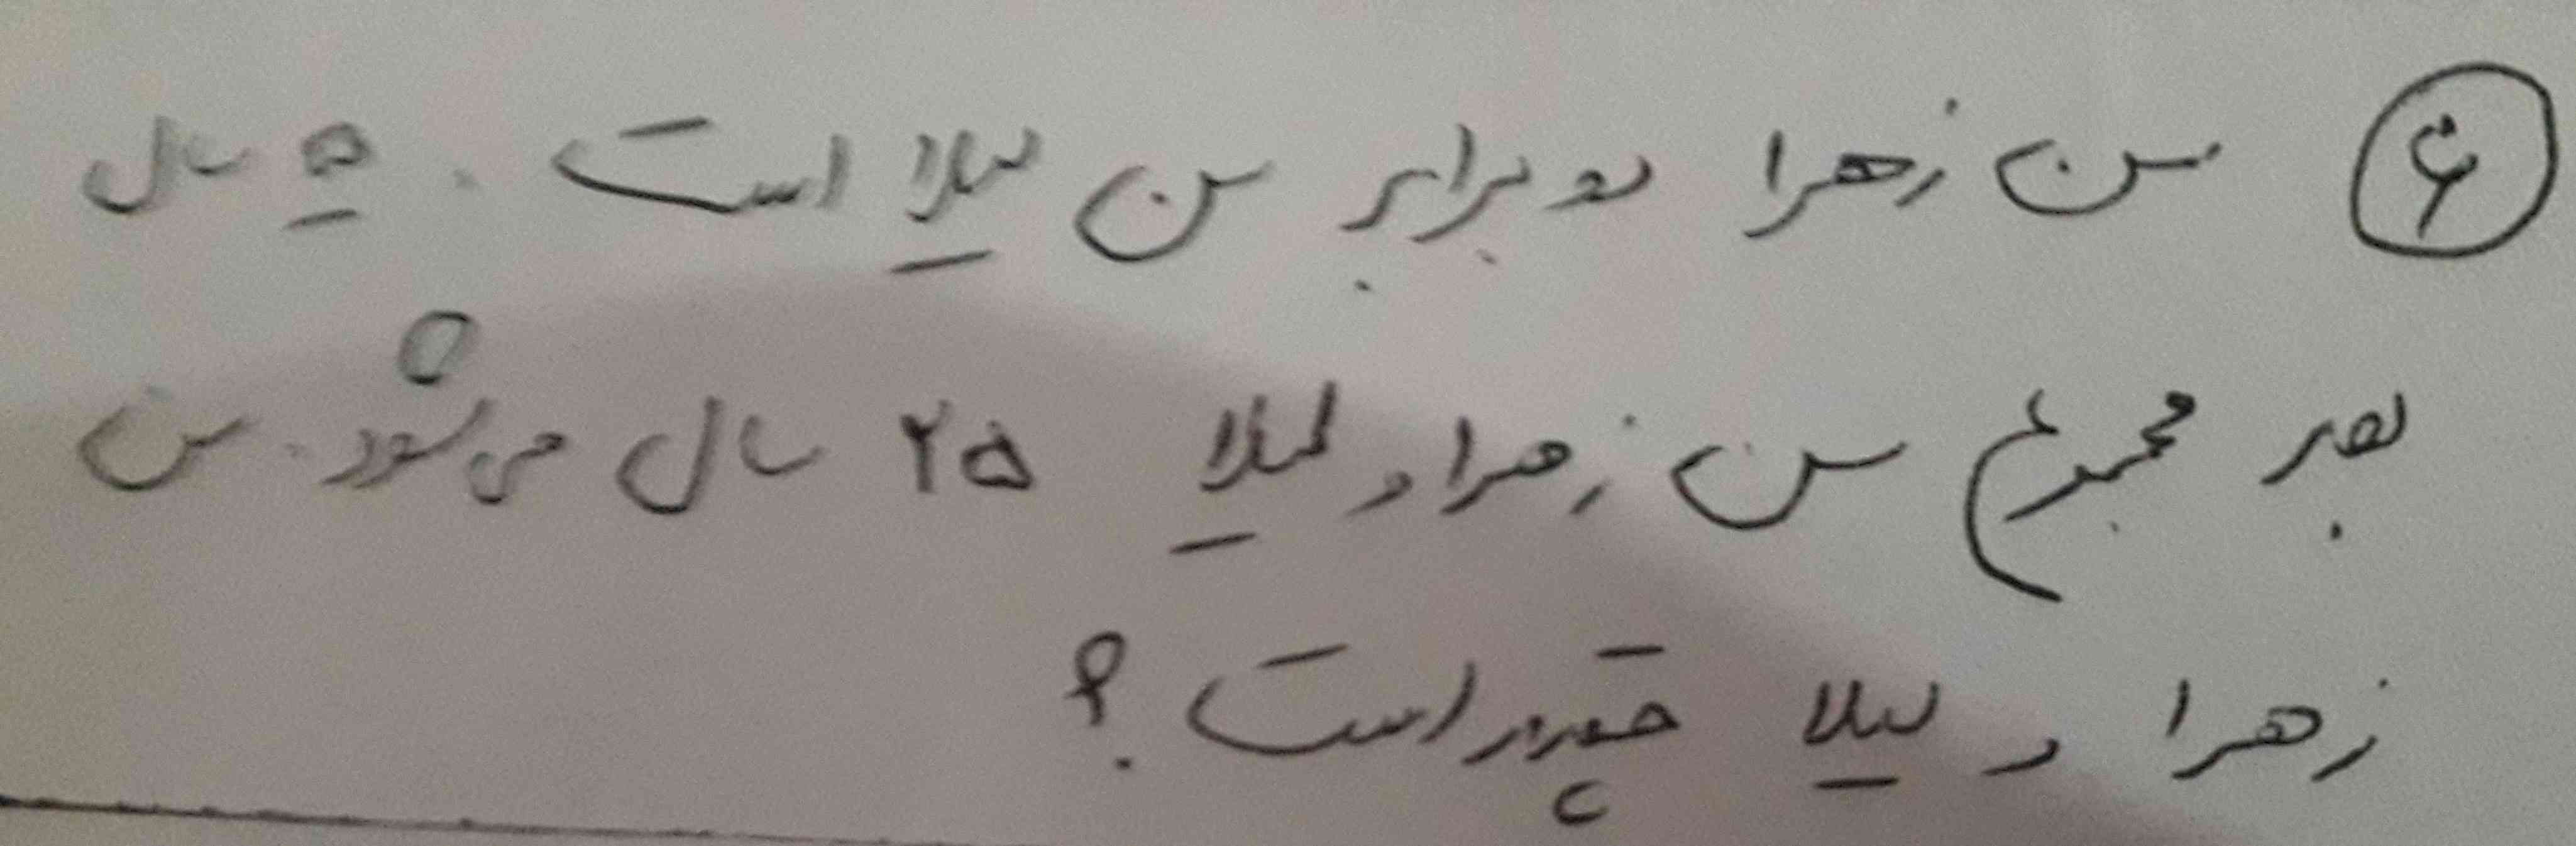 ۶ سن زهرا دو برابر سن لیلا است. ۵ سال
بعد مجموع سن زهرا و لیلا ۲۵ سال می‌شود. سن
زهرا و لیلا چقدر است؟